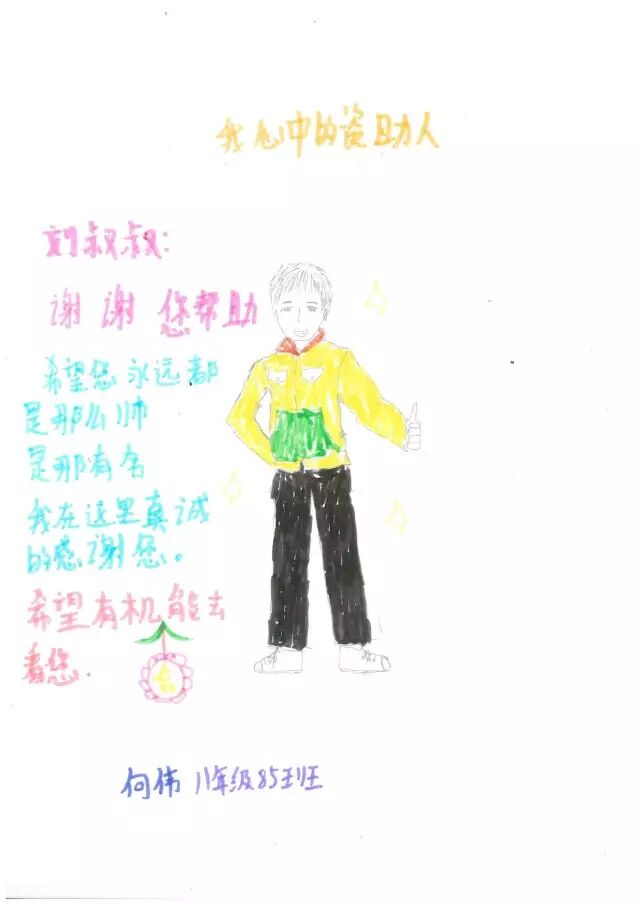 我心中的资助人
刘叔叔:
谢谢您帮助
希望您永远都
是那么帅
是那有名
我在这里真诚
的感谢您。
希望有机能去
看您.
何伟 八年级85班